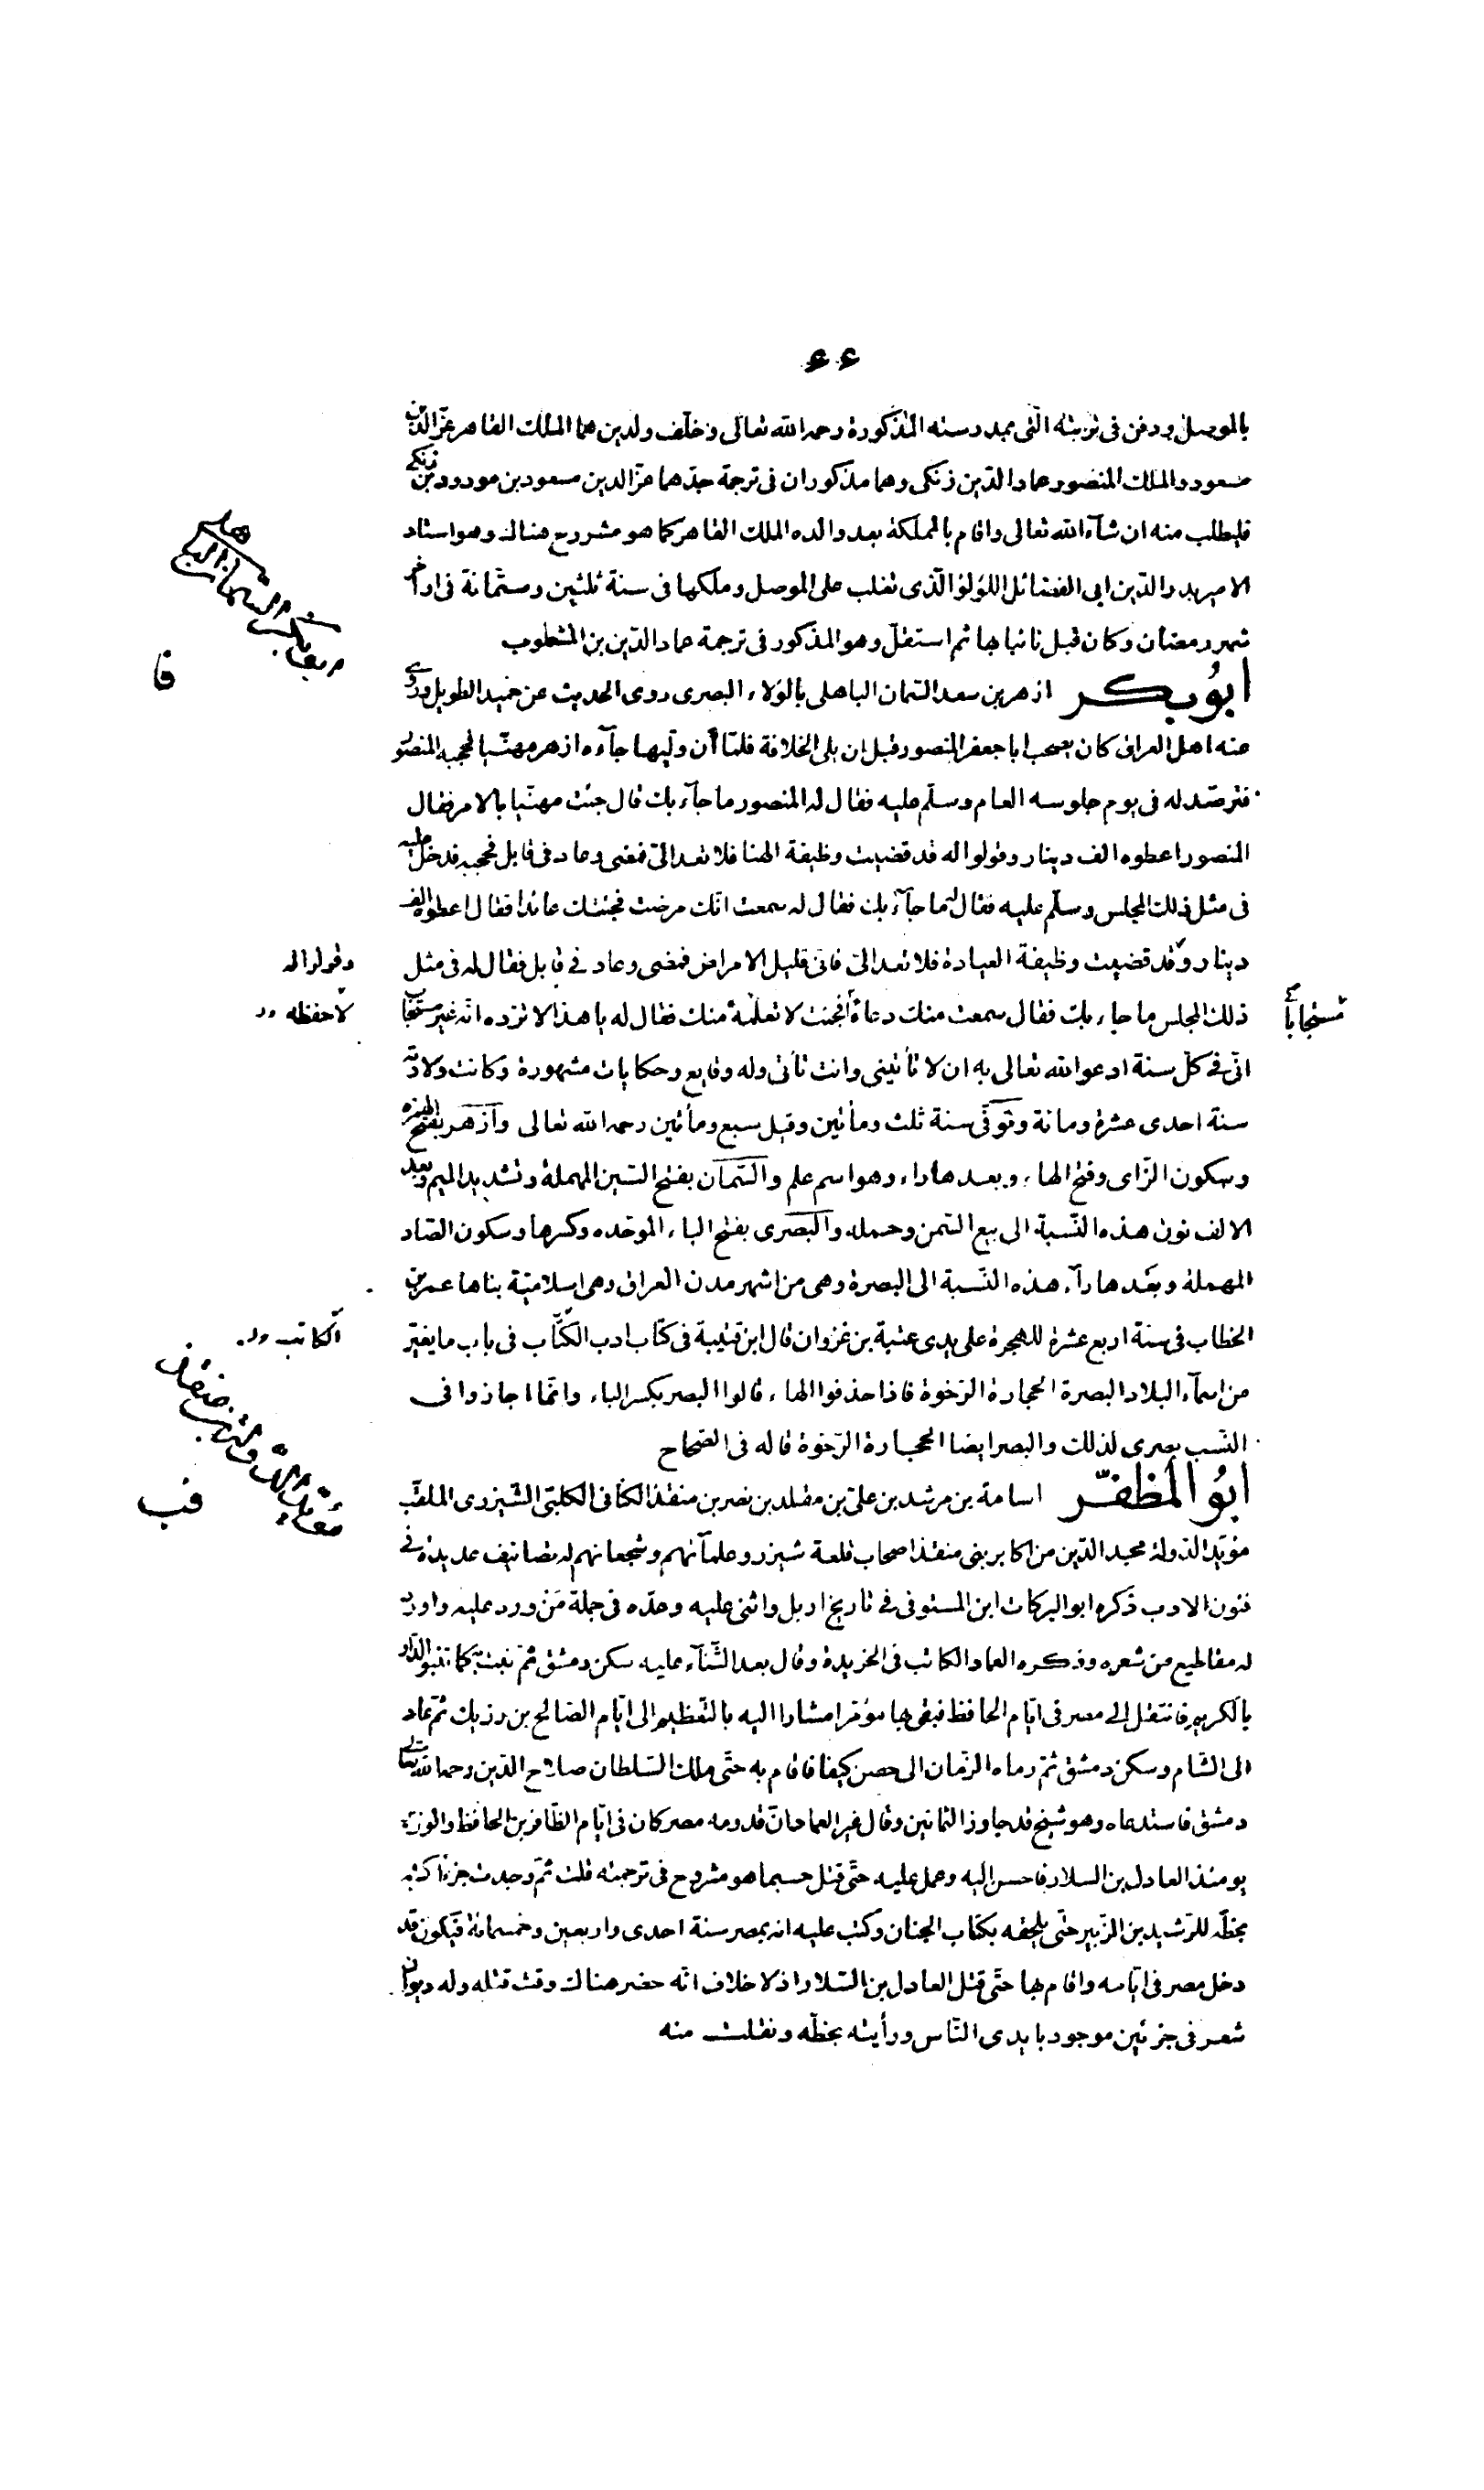 ۶۶
بالموصل ودفن فى تربته الّتى بمدرسته المذكورة رحمه الله تعالى وخلّف ولدين هما الملك القاهر عزّ الدّين
مسعود والملك المنصور عماد الدّين زنكى وهما مذكوران فى ترجمة جدّهما عزّ الدين مسعود بن مودود بن زنكى
فليطلب منه ان شآء الله تعالى واقام بالمملكة بعد والده الملك القاهر كما هو مشروح هناك وهو استاد
الامير بدر الدّين ابى الفضائل اللؤلؤ الّذى تغلب على الموصل وملكها فى سنة ثلثين وستّمائة فى اواخر
شهر رمضان وكان قبل نائبا بها ثم استقلّ وهو المذكور فى ترجمة عماد الدّين بن المشطوب
ابوُ بكر ازهر بن سعد السّمان الباهلى بالوَلاء البصرى روى الحديث عن حميد الطويل وروى
عنه اهل العراق كان يصحب ابا جعفر المنصور قبل ان يلى الخلافة فلمّا أن وليها جآءه ازهر مهنّيا فحجبه المنصور
فترصّد له فى يوم جلوسه العام وسلّم عليه فقال له المنصور ما جآء بك قال جئت مهنّيا بالامر فقال
المنصور اعطوه الف دينار وقولوا له قد قضيت وظيفة الهنا فلا تعد الىّ فمضى وعاد فى قابل فحجبه فدخل عليه
فى مثل ذلك المجلس وسلّم عليه فقال له ما جآء بك فقال له سمعت انّك مرضت فجئتك عائدا فقال اعطوه الف
دينار وقد قضيت وظيفة العيادة فلا تعد الىّ فانّى قليل الامراض فمضى وعاد فى قابل فقال له فى مثل
وقولوا له
ذلك المجلس ما جاء بك فقال سمعت منك دعاءً فجئت لا تعلّمه منك فقال له يا هذا لا تزده انّه غير مستجاب
لاحفظه
مستجاباً
انّى فى كلّ سنة ادعو الله تعالى به ان لا تأتينى وانت تأتى وله وقايع وحكايات مشهورة وكانت ولادته
سنة احدى عشرة ومائة وتوفّى سنة ثلث ومأتين وقيل سبع ومأتين رحمه الله تعالى وأزهر بفتح الهمزه
وسكون الزّاى وفتح الهاء وبعدها راء وهو اسم علم والسّمان بفتح السّين المهملة وتشديد الميم وبعد
الالف نون هذه النّسبة الى بيع السّمن وحمله والبصرى بفتح الباء الموحّده وكسرها وسكون الصّاد
المهملة وبعدها رآء هذه النّسبة الى البصرة وهى من اشهر مدن العراق وهى اسلاميّة بناها عمر بن
الخطاب فى سنة اربع عشرة للهجرة على يدى عتبة بن غزوان قال ابن قتيبة فى كتاب ادب الكتّاب فى باب ما يغيّر
الكاتب
من اسمآء البلاد البصرة الحجارة الرّخوة فاذا حذفوا الهاء قالوا البصر بكسر الباء وانّما اجازوا فى
النّسب بصرى لذلك والبصر ايضا الحجارة الرّخوة قاله فى الصّحاح
ابوُ المظفّر اسامة بن مرشد بن علىّ بن مقلد بن نصر بن منقذ الكنانى الكلبىّ الشّيزرى الملقّب
مؤيّد الدّولة مجيد الدّين من اكابر بنى منقذ اصحاب قلعة شيزر وعلمآئهم وشجعانهم له تصانيف عديدة فى
فنون الادب ذكره ابو البركات ابن المستوفى فى تاريخ اربل واثنى عليه وعدّه فى جملة مَن ورد عليه واورد
له مقاطيع من شعره وذكره العماد الكاتب فى الخريدة وقال بعد الثّنآء عليه سكن دمشق ثمّ نبت به كما تنبو الدّار
بالكريم فانتقل الى مصر فى ايّام الحافظ فبقى بها مؤمّرا مشارا اليه بالتّعظيم الى ايّام الصّالح بن رزيك ثمّ عاد
الى الشّام وسكن دمشق ثمّ رماه الزّمان الى حصن كيفا فاقام به حتّى ملك السّلطان صلاح الدّين رحمه الله تعالى
دمشق فاستدعاه وهو شيخ قد جاوز الثمانين وقال غير العماد انّ قدومه مصر كان فى ايّام الظّافر بن الحافظ والوزير
يومئذ العادل بن السلار فاحسن اليه وعمل عليه حتّى قتل حسبما هو مشروح فى ترجمته قلت ثمّ وجدت جزءا كتبه
بخطّه للرّشيد بن الزّبير حتّى يلحقه بكتاب الجنان وكتب عليه انه بمصر سنة احدى واربعين وخمسمائة فيكون قد
دخل مصر فى ايّامه واقام بها حتّى قتل العادل بن السّلار اذ لا خلاف انّه حضر هناك وقت قتله وله ديوان
شعر فى جزئين موجود بايدى النّاس ورأيته بخطّه ونقلت منه
قا
قب